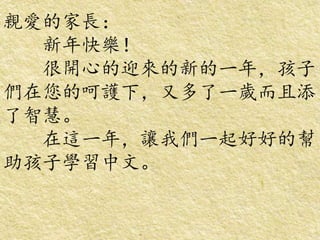 親愛的家長：
新年快樂！
很開心的迎來的新的一年，孩子
們在您的呵護下，又多了一歲而且添
了智慧。
在這一年，讓我們一起好好的幫
助孩子學習中文。